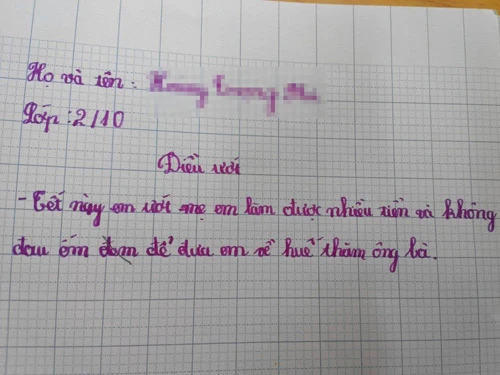 Họ và tên:
Lớp: 2/10
Điều ước
- Tết này em ước mẹ em làm được nhiều tiền và không
đau ốm để đưa em về huế thăm ông bà.